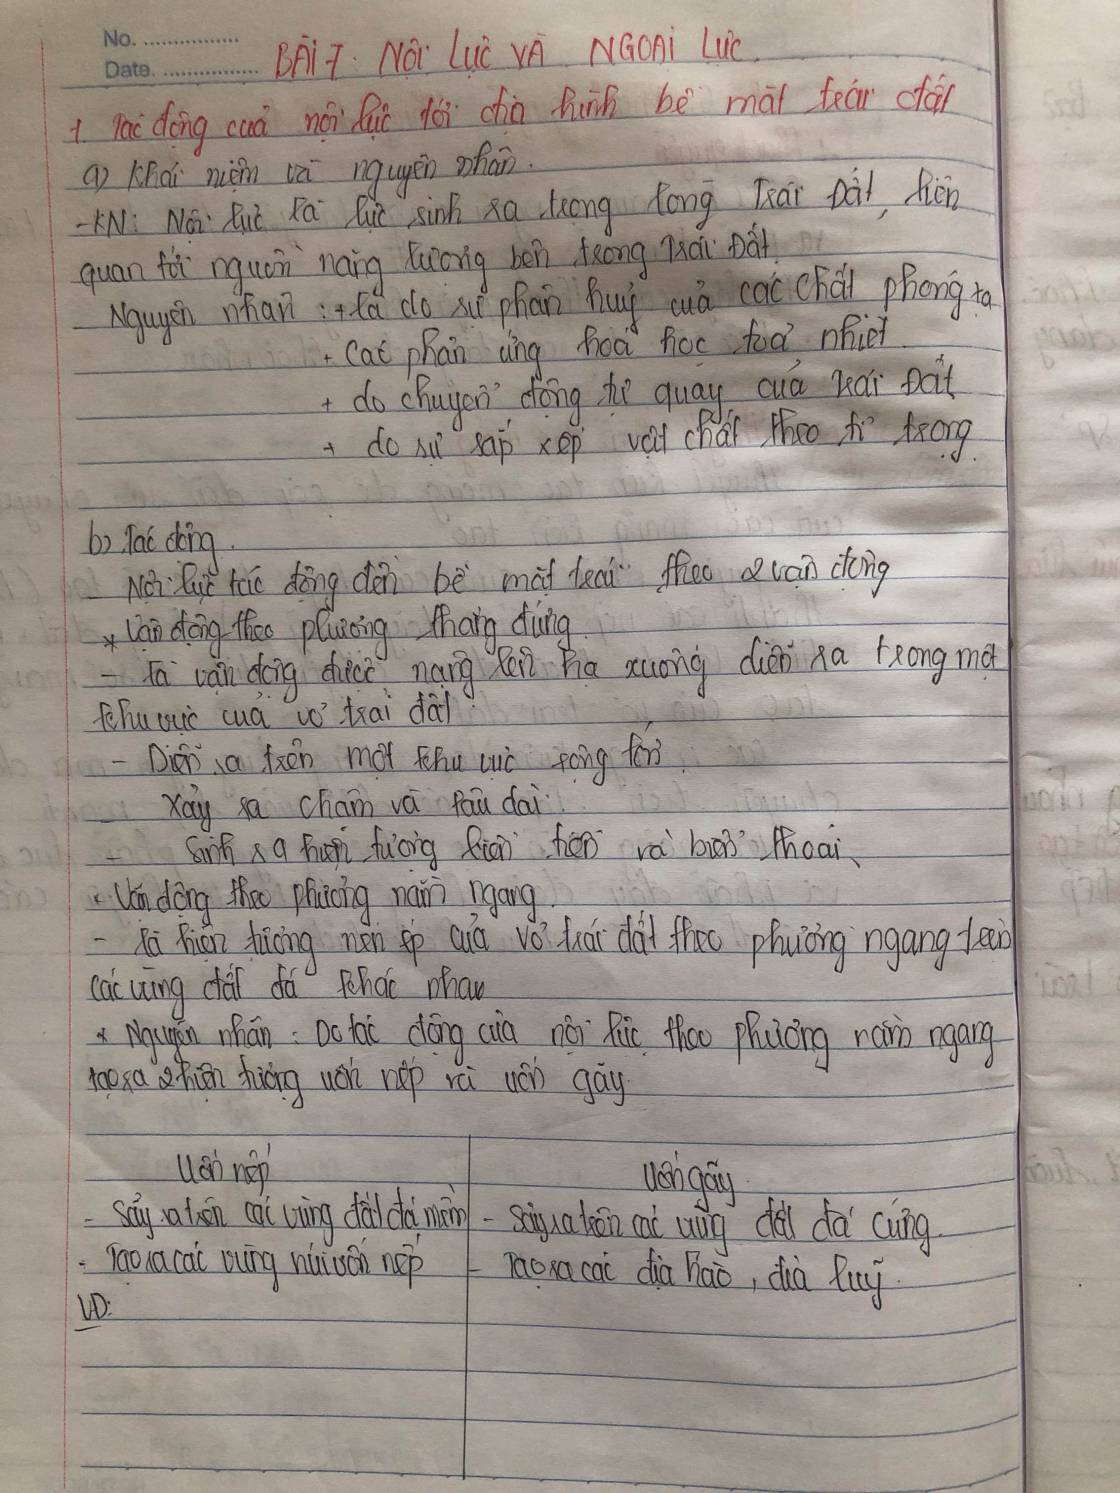 No. ................
Date. ................
BÀI 7: NỘI LỰC VÀ NGOẠI LỰC.
1. Tác động của nội lực tới địa hình bề mặt trái đất
a) Khái niệm và nguyên nhân.
-KN: Nội lực là lực sinh ra trong lòng Trái Đất, liên
quan tới nguồn năng lượng bên trong Trái Đất.
- Nguyên nhân : + là do sự phân huỷ của các chất phóng xạ
+ Các phản ứng hoá học toả nhiệt.
+ do chuyển động tự quay của Trái Đất
+ do sự sắp xếp vật chất theo tỉ trọng.
b) Tác động.
- Nội lực tác động đến bề mặt trái theo 2 vận động
* Vận động theo phương thẳng đứng.
- là vận động được nâng lên hạ xuống diễn ra trong một
khu vực của vỏ trái đất.
- Diễn ra trên một khu vực rộng lớn.
- Xảy ra chậm và lâu dài.
- Sinh ra hiện tượng biển tiến và biển thoái.
* Vận động theo phương nằm ngang.
- là hiện tượng nén ép của vỏ trái đất theo phương ngang trên
các vùng đất đá khác nhau
* Nguyên nhân : Do tác động của nội lực theo phương nằm ngang
tạo ra 2 hiện tượng uốn nếp và uốn gãy.
Uốn nếp
Uốn gãy.
- Sảy ra trên các vùng đất đá mềm
- Sảy ra trên các vùng đất đá cứng.
- Tạo ra các vùng núi uốn nếp
- Tạo ra các địa hào, địa luỹ.
VD: